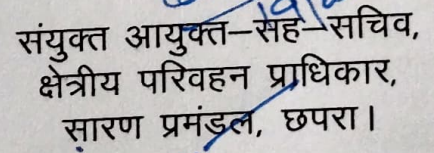 संयुक्त आयुक्त–सह–सचिव,
क्षेत्रीय परिवहन प्राधिकार,
सारण प्रमंडल, छपरा।